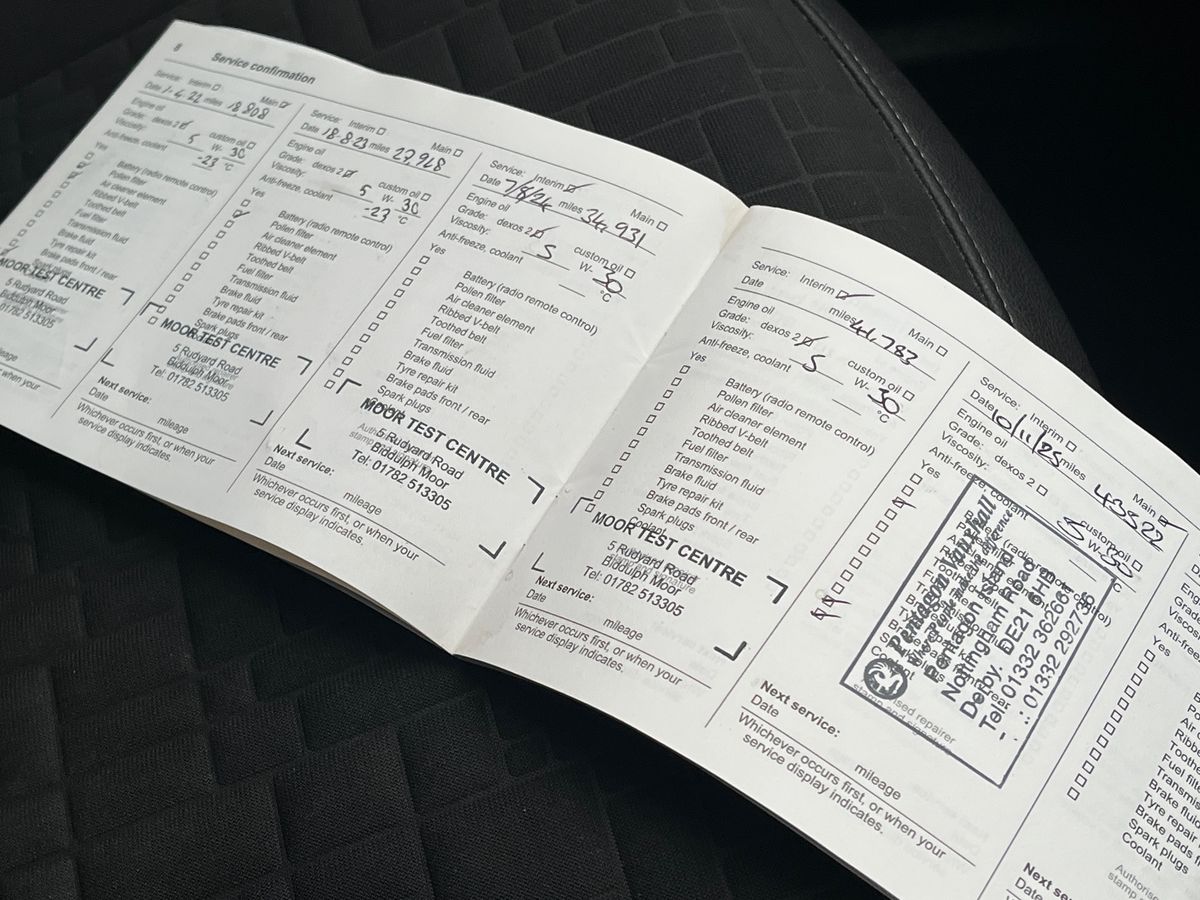 8
Service confirmation
Service: Interim ☐ Main ☑
Date 1-4.22 miles 18 808
Engine oil
Grade: dexos 2 ☑ custom oil ☐
Viscosity: 5 W- 30
Anti-freeze, coolant -23 °C
Yes
Battery (radio remote control)
Pollen filter
Air cleaner element
Ribbed V-belt
Toothed belt
Fuel filter
Transmission fluid
Brake fluid
Tyre repair kit
Brake pads front / rear
MOOR TEST CENTRE
5 Rudyard Road
Biddulph Moor
01782 513305
Service: Interim ☐ Main ☐
Date 18-8-23 miles 27928
Engine oil
Grade: dexos 2 ☑ custom oil ☐
Viscosity: 5 W- 30
Anti-freeze, coolant -23 °C
Yes
Battery (radio remote control)
Pollen filter
Air cleaner element
Ribbed V-belt
Toothed belt
Fuel filter
Transmission fluid
Brake fluid
Tyre repair kit
Brake pads front / rear
Spark plugs
MOOR TEST CENTRE
5 Rudyard Road
Biddulph Moor
Tel: 01782 513305
Next service:
Date mileage
Whichever occurs first, or when your
service display indicates.
Service: Interim ☑ Main ☐
Date 7/8/24 miles 34,931
Engine oil
Grade: dexos 2 ☑ custom oil ☐
Viscosity: 5 W- 30
Anti-freeze, coolant °C
Yes
Battery (radio remote control)
Pollen filter
Air cleaner element
Ribbed V-belt
Toothed belt
Fuel filter
Transmission fluid
Brake fluid
Tyre repair kit
Brake pads front / rear
Spark plugs
MOOR TEST CENTRE
5 Rudyard Road
Biddulph Moor
Tel: 01782 513305
Next service:
Date mileage
Whichever occurs first, or when your
service display indicates.
Service: Interim ☑ Main ☐
Date miles 41,783
Engine oil
Grade: dexos 2 ☑ custom oil ☐
Viscosity: 5 W- 30
Anti-freeze, coolant °C
Yes
Battery (radio remote control)
Pollen filter
Air cleaner element
Ribbed V-belt
Toothed belt
Fuel filter
Transmission fluid
Brake fluid
Tyre repair kit
Brake pads front / rear
Spark plugs
Coolant
MOOR TEST CENTRE
5 Rudyard Road
Biddulph Moor
Tel: 01782 513305
Next service:
Date mileage
Whichever occurs first, or when your
service display indicates.
Service: Interim ☐ Main ☑
Date 10/11/25 miles 43522
Engine oil
Grade: dexos 2 ☐ custom oil ☐
Viscosity: 5 W- 30
Anti-freeze, coolant °C
Yes
Pentagon Vauxhall
Pentagon Island
Nottingham Road
Derby. DE21 6HB
Tel: 01332 362661
: 01332 292736
Next service:
Date mileage
Whichever occurs first, or when your
service display indicates.
Yes
Fuel filter
Brake fluid
Tyre repair
Brake pads
Spark plugs
Coolant
Date